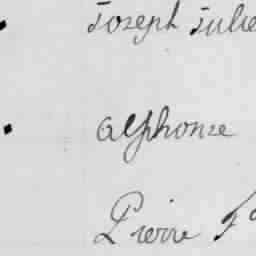 Joseph Julie
Alphonse
Pierre